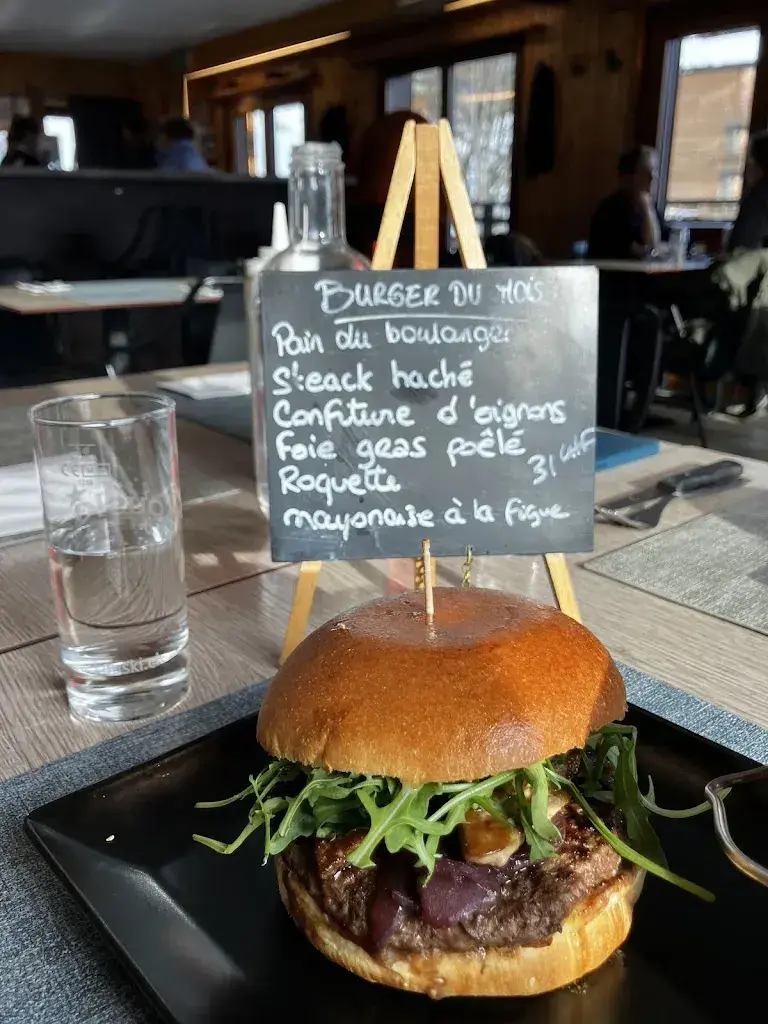 BURGER DU MOIS
Pain du boulanger
Steack haché
Confiture d'oignons
Foie gras poêlé
31 CHF
Roquette
mayonaise à la figue